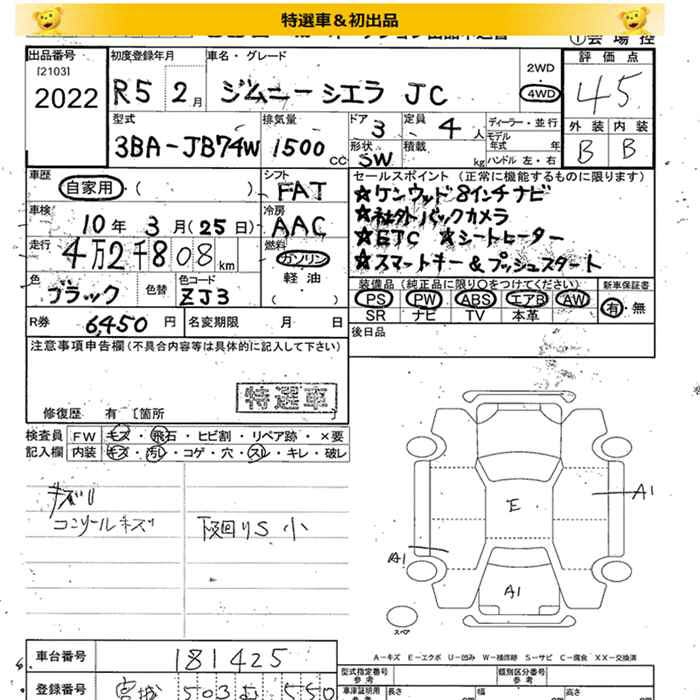 特選車＆初出品
出品番号
[2103]
2022
初度登録年月
R5 2月
車名・グレード
ジムニーシエラ JC
2WD
・
4WD
評価点
4.5
外装 内装
B B
型式
3BA-JB74W
排気量
1500 CC
ドア 3
定員 4 人
形状 SW
積載 kg
ディーラー・並行
モデル年式 年
ハンドル 左・右
車歴
自家用・( )
シフト
FAT
車検
10年 3月(25日)
冷房
AAC
走行
4万2千808km
燃料
ガソリン
軽油
( )
色
ブラック
色替
色コード
ZJ3
セールスポイント (正常に機能するものに限ります)
☆ケンウッド8インチナビ
☆社外バックカメラ
☆ETC ☆シートヒーター
☆スマートキー&プッシュスタート
装備品(純正品に限り○をつけてください)
PS PW ABS エアB AW
SR ナビ TV 本革
新車保証書
有・無
後日品
R券 6,450円
名変期限 月 日
注意事項申告欄(不具合内容等は具体的に記入して下さい)
特選車
修復歴 有 〔箇所
検査員記入欄
FW キズ・飛石・ヒビ割・リペア跡・×要
内装 キズ・汚レ・コゲ・穴・スレ・キレ・破レ
キズリ
コンソールキズ
下廻りS 小
E
A1
A1
A1
スペア
A－キズ E－エクボ U－凹み W－補修跡 S－サビ C－腐食 XX－交換済
車台番号
181425
登録番号
宮城 503 む 550
型式指定番号
参考
類別区分番号
参考
車庫証明用
参考
長さ
幅
高さ